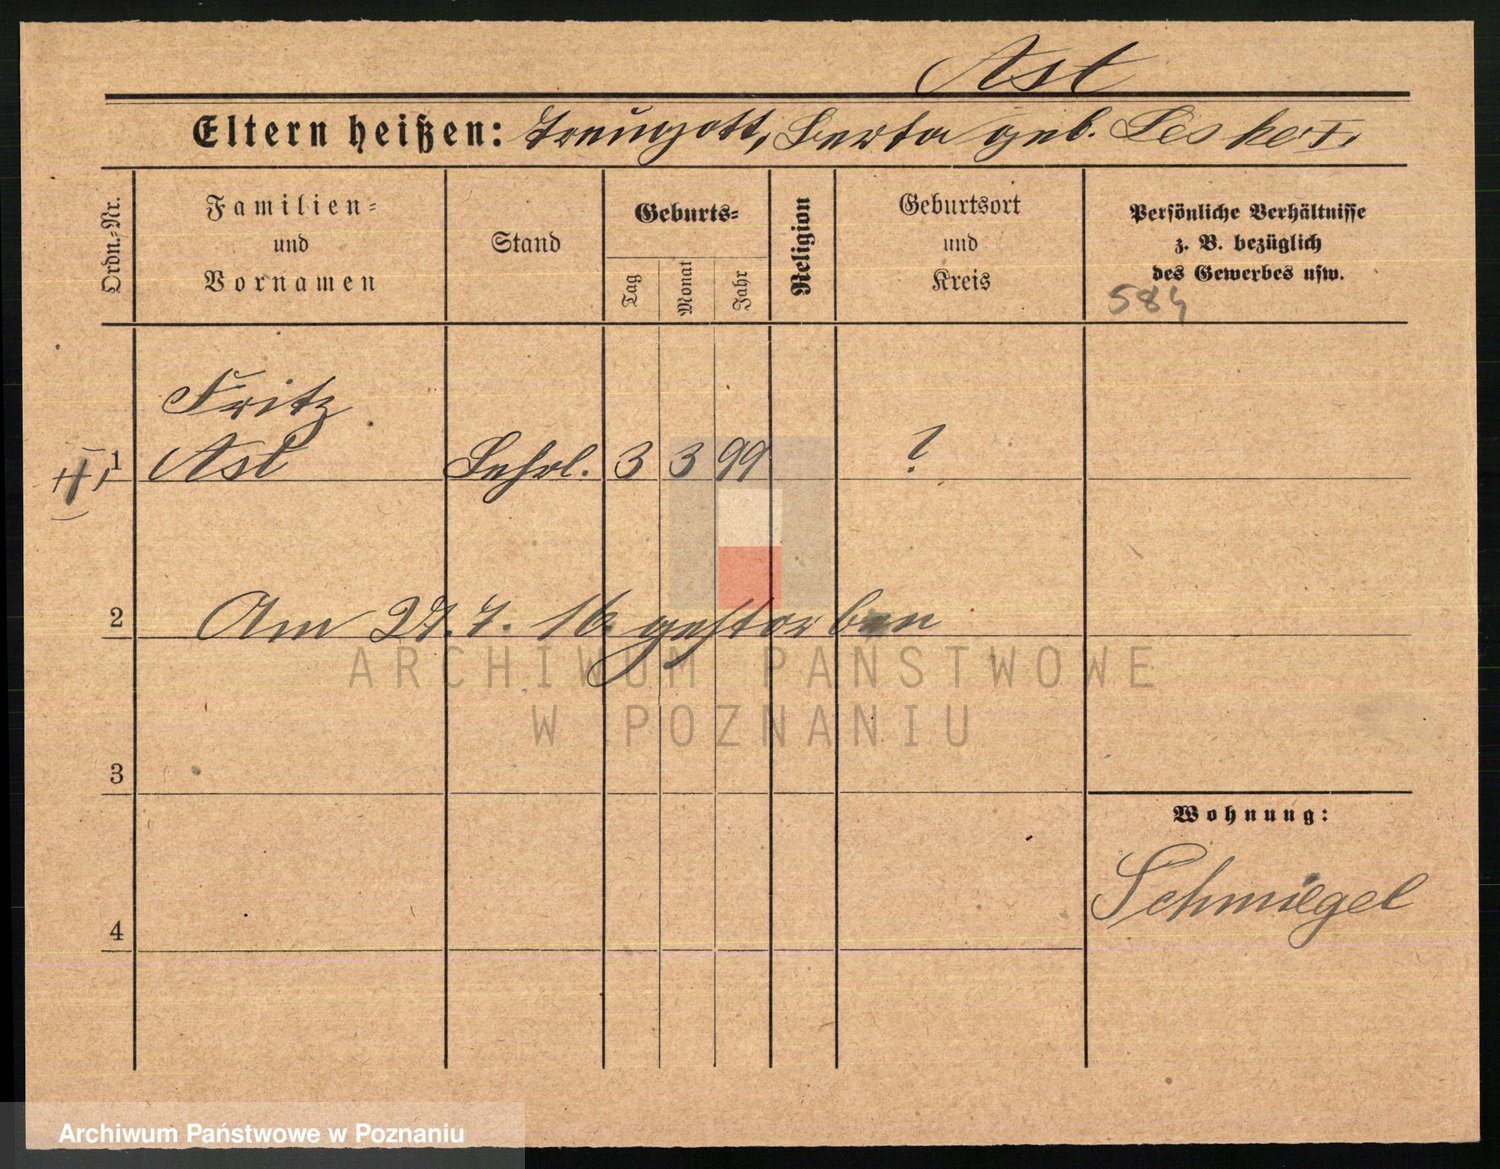 Ast
Eltern heißen: Traugott, Berta geb.
Ordn.-Nr.
Familien-
und
Vornamen
Stand
Geburts-
Tag
Monat
Jahr
Religion
Geburtsort
und
Kreis
Persönliche Verhältnisse
z. B. bezüglich
des Gewerbes usw.
584
Fritz
1 Ast Lehrl. 3 3 99 ?
2 Am 27. 7. 16 gestorben
ARCHIWUM PAŃSTWOWE
W POZNANIU
3
Wohnung:
Schmiegel
4
Archiwum Państwowe w Poznaniu